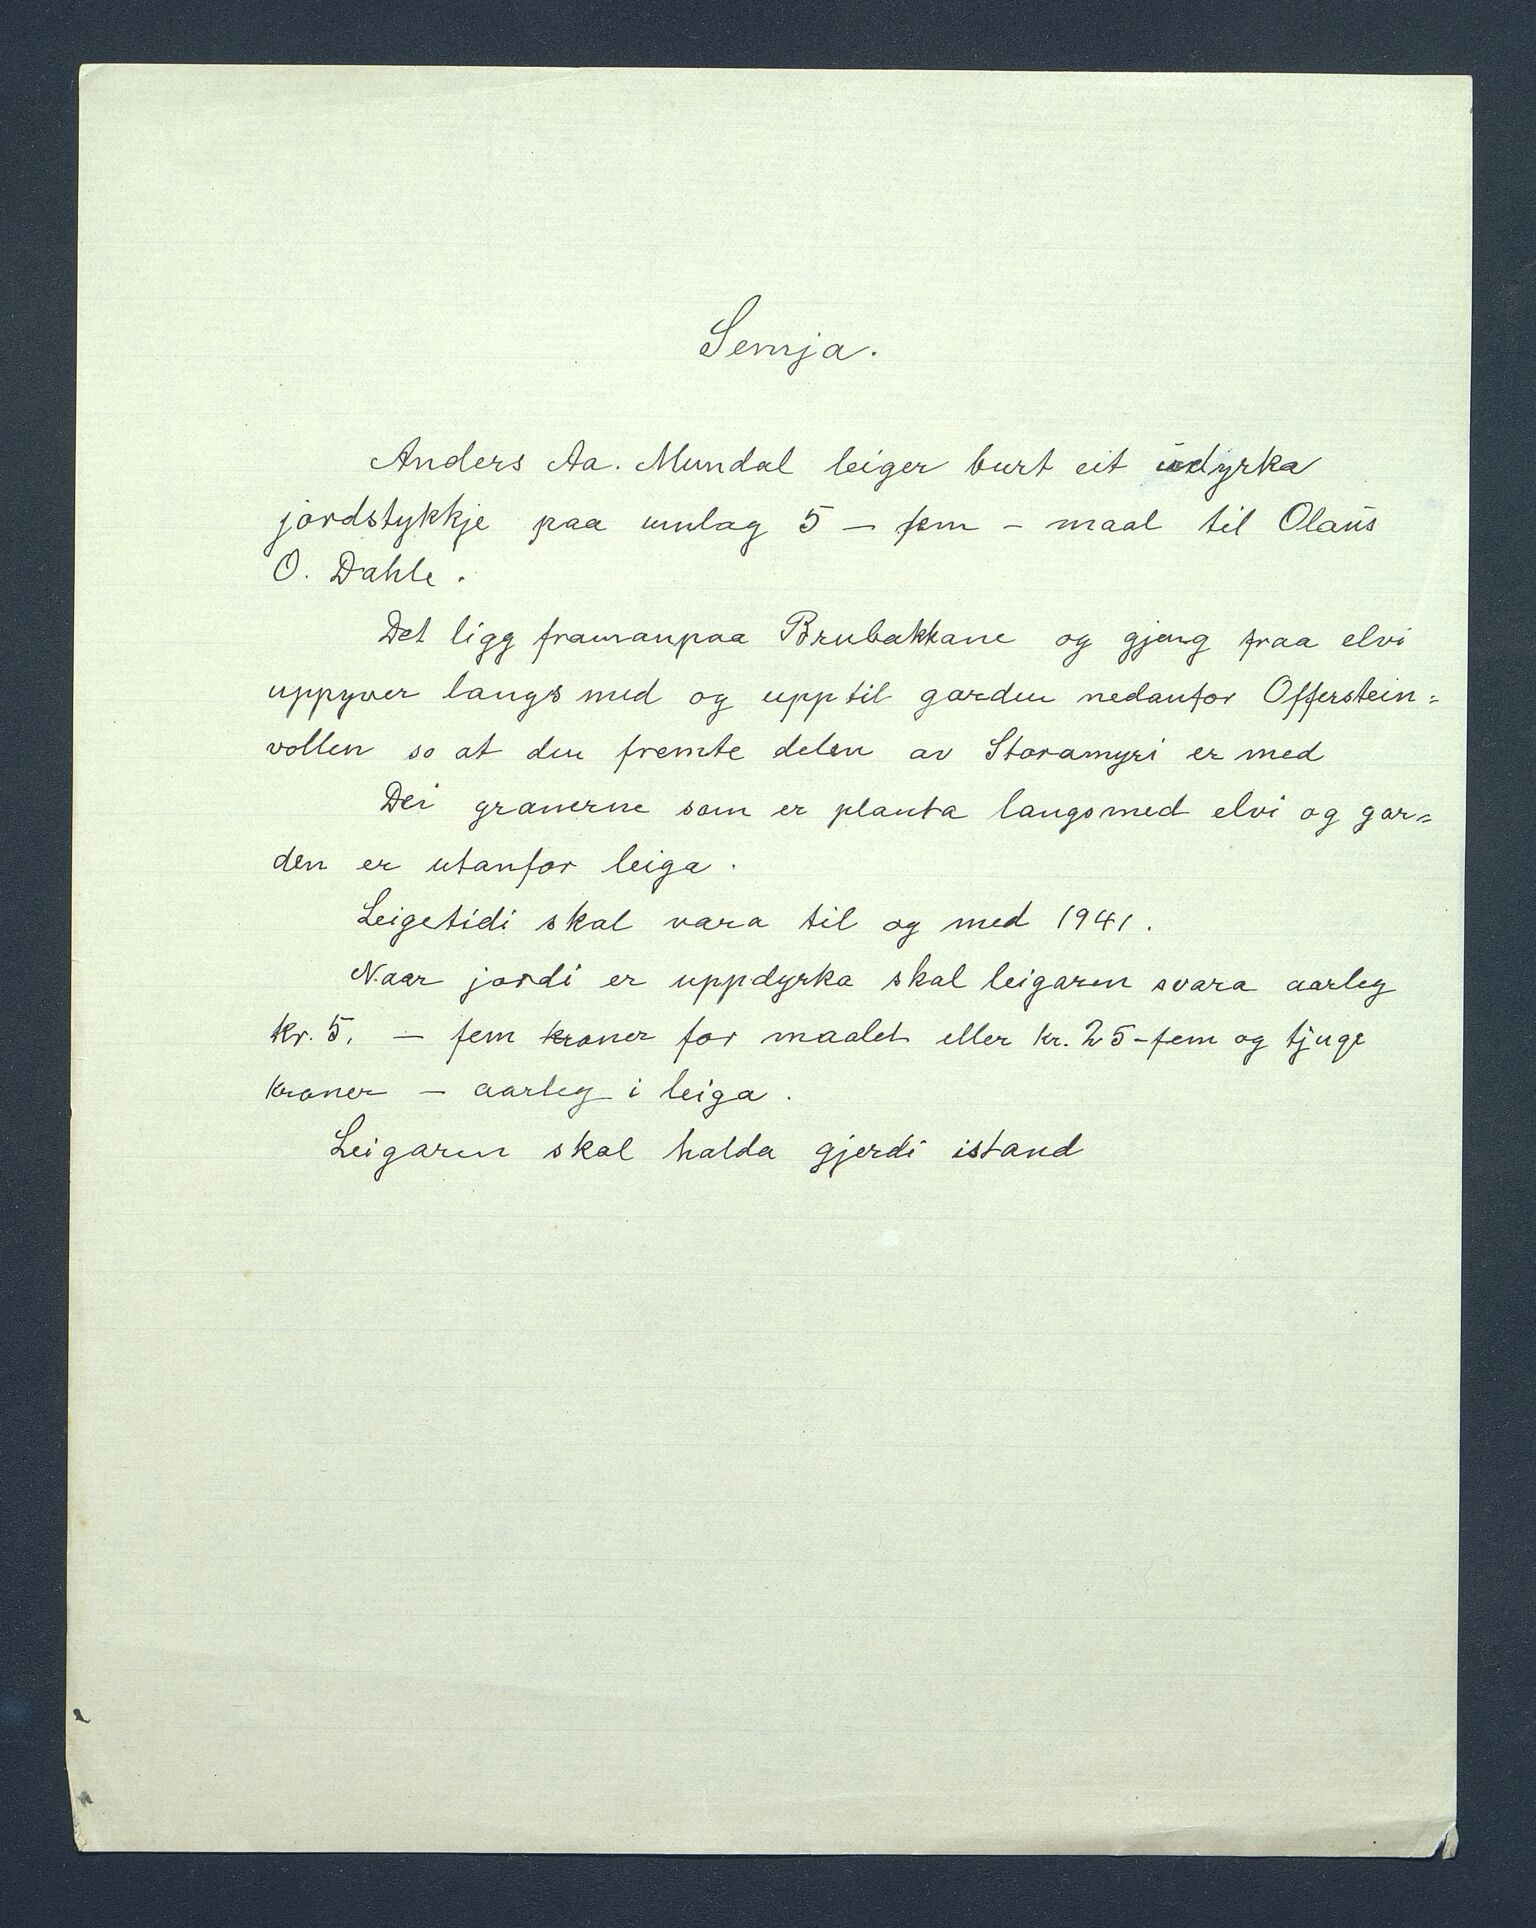 Semja.
Anders Aa. Mundal leiger burt eit udyrka
jordstykkje paa umlag 5 – fem – maal til Olaus
O. Dahle.
Det ligg framanpaa Brubakkane og gjeng fraa elvi
uppyver langs med og upp til garden nedanfor Offerstein=
vollen so at den fremte delen av Storamyri er med
Dei granerne som er planta langsmed elvi og gar=
den er utanfor leiga.
Leigetidi skal vara til og med 1941.
Naar jordi er uppdyrka skal leigaren svara aarleg
kr. 5. – fem kroner for maalet eller kr. 25 – fem og tjuge
kroner – aarleg i leiga.
Leigaren skal halda gjerdi istand